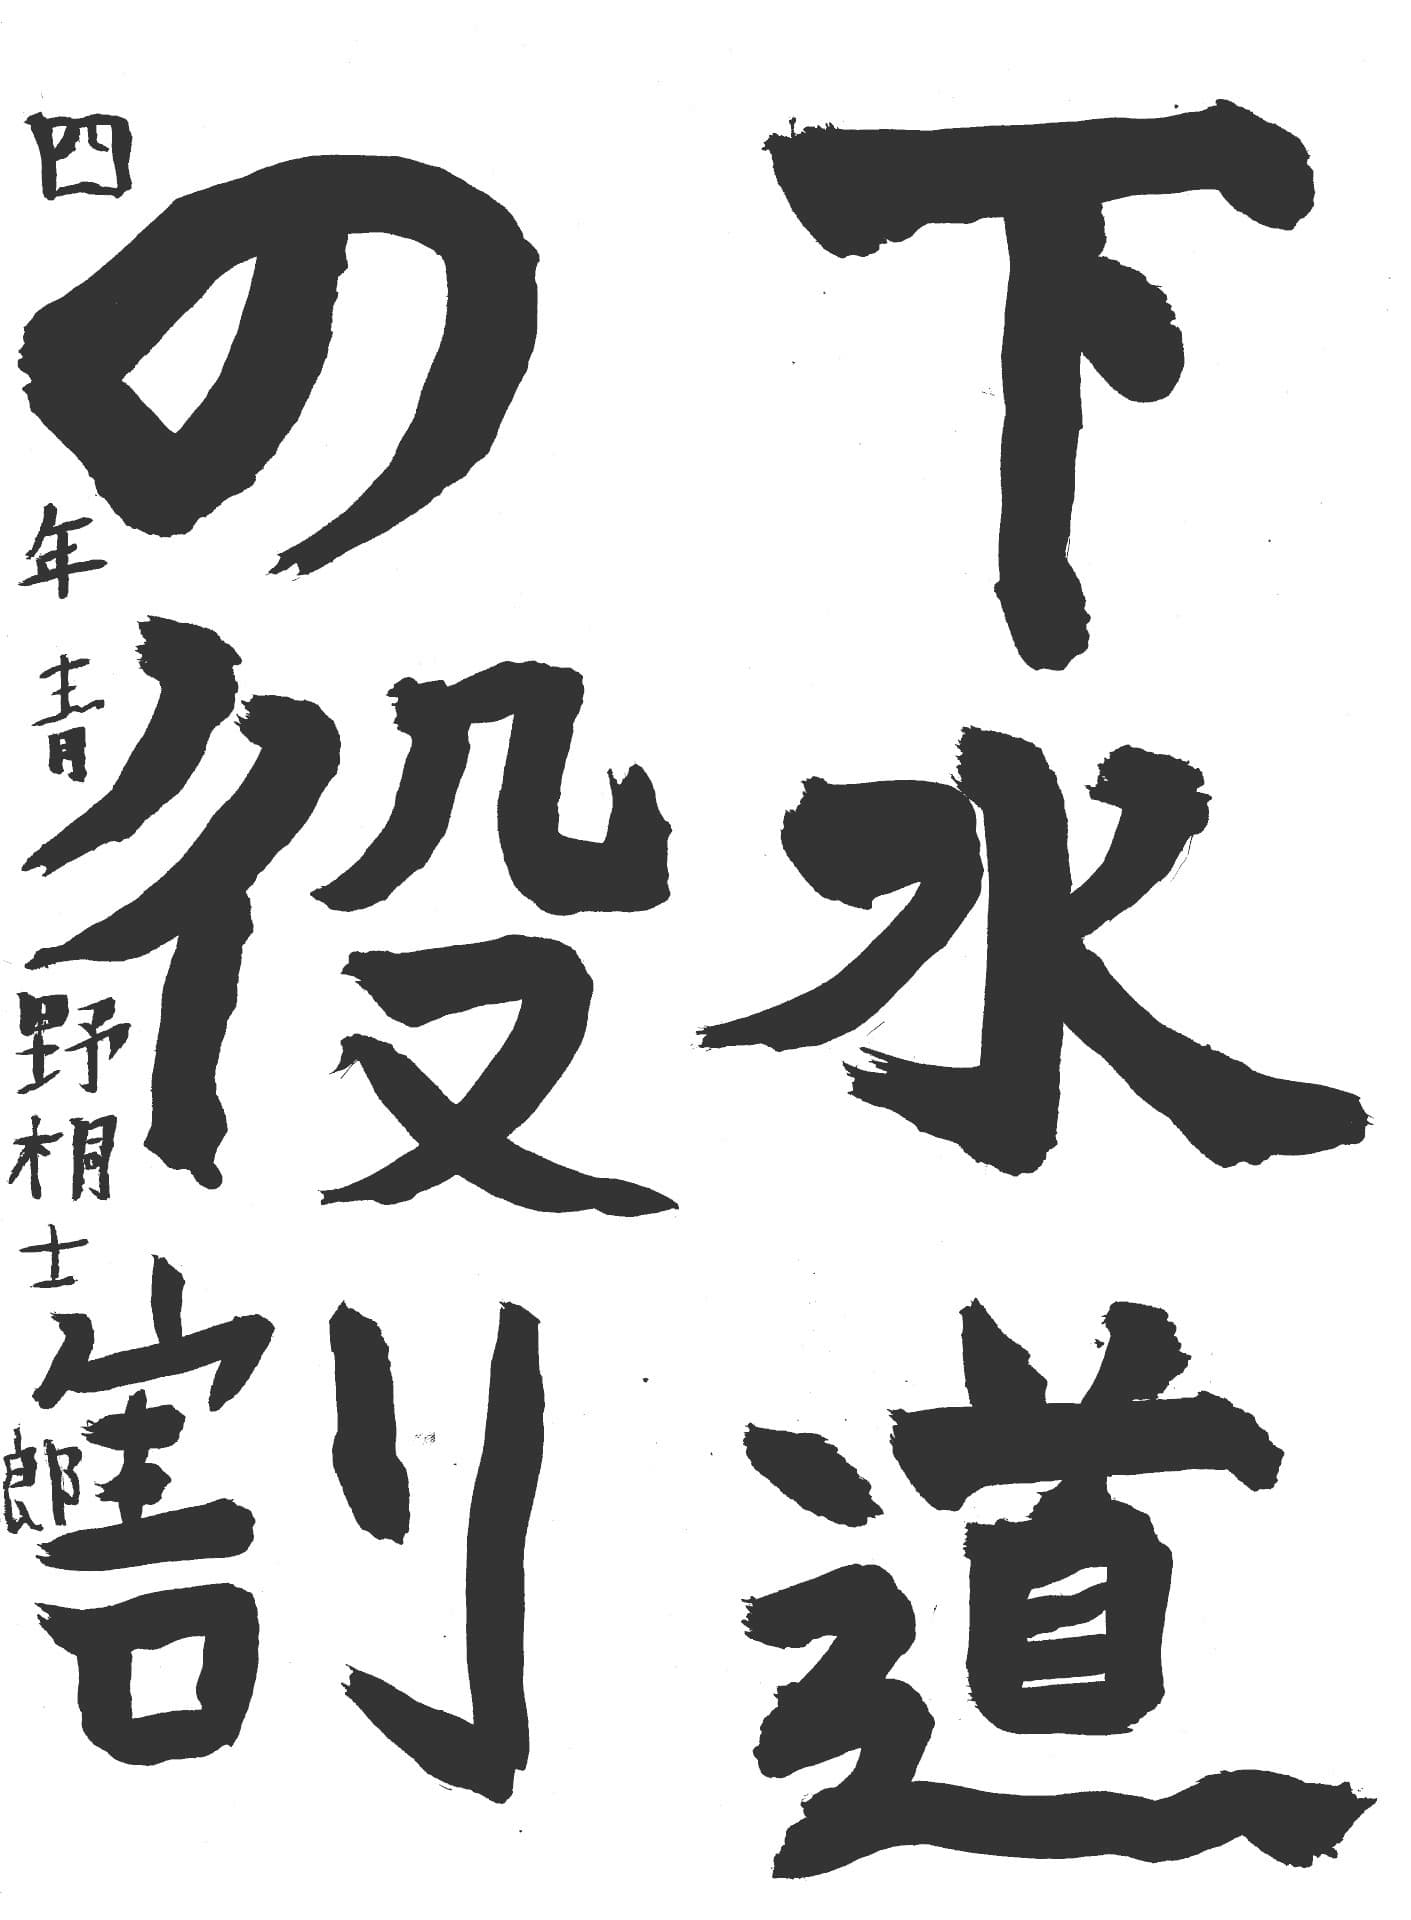 下水道
の役割
四年青野相士郎